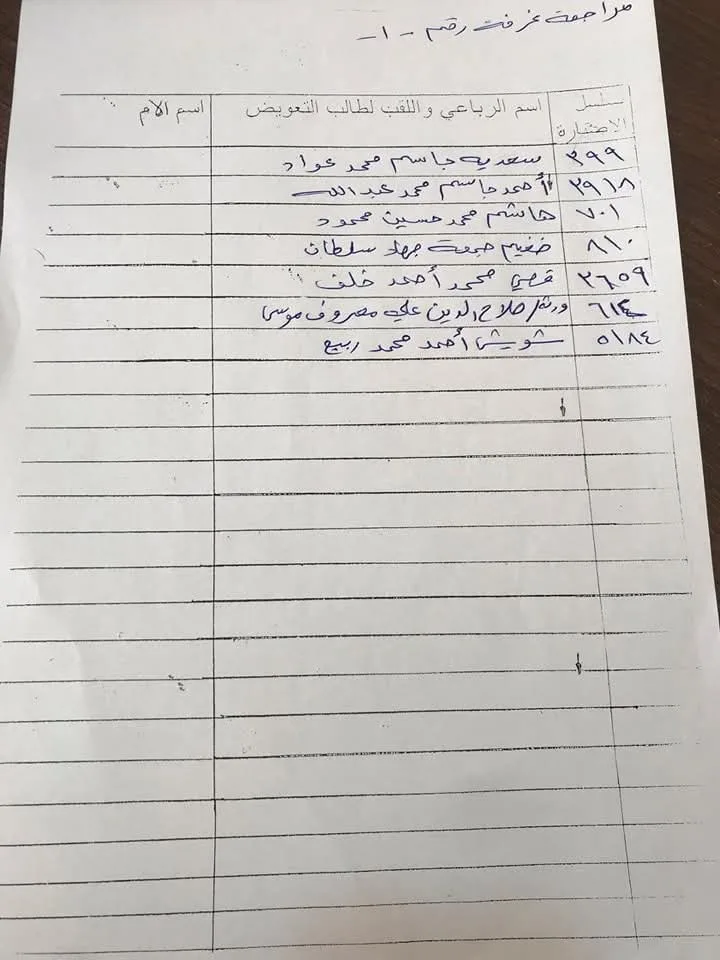 مراجعة غرفة رقم - ١ -
سلسل الاضبارة اسم الرباعي واللقب لطالب التعويض اسم الام
٣٩٩ سعديه جاسم محمد عواد
٣٩١٨ أحمد جاسم محمد عبدالله
٧٠١ هاشم محمد حسين محمود
٨١٠ ضغيم جمعة جهاد سلطان
٣٦٥٩ قصي محمد أحمد خلف
٦١٤ ورثة/ صلاح الدين علي معروف موسى
٥١٨٤ شويش أحمد محمد ربيع